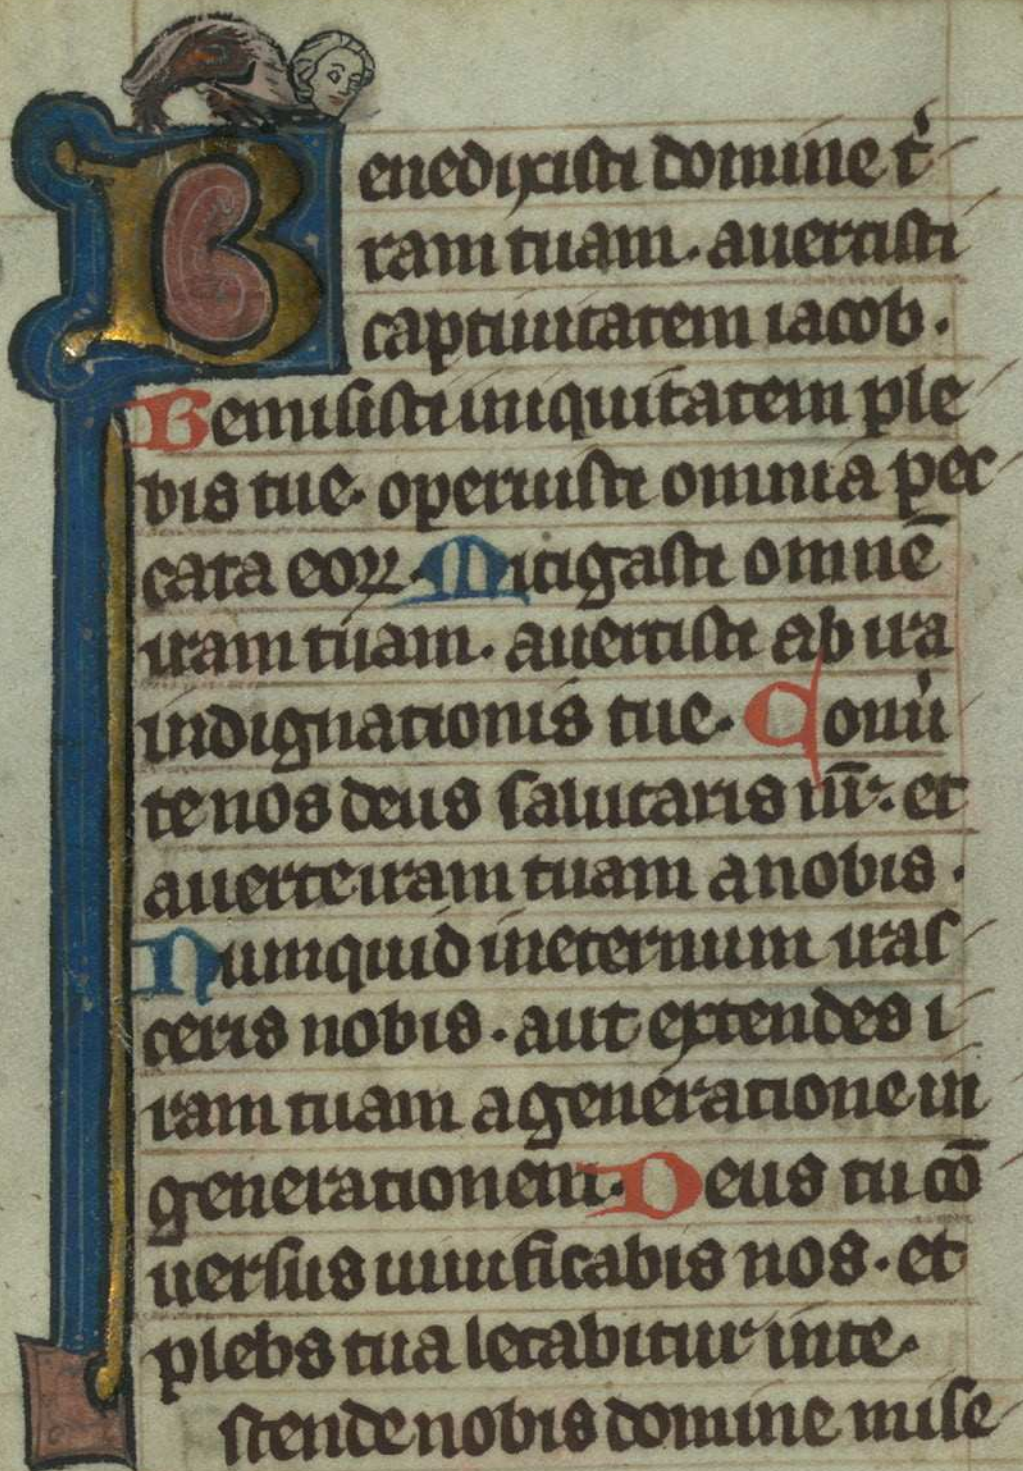 Benedixisti domine t̉
ram tuam. auertisti
captiuitatem iacob.
Remisisti iniquitatem ple
bis tue. operuisti omnia pec
cata eoꝝ. Mitigasti omnē
iram tuam. auertisti ab ira
indignationis tue. Conu̾
te nos deus salutaris nr̄. et
auerte iram tuam a nobis.
Numquid in eternum iras
ceris nobis. aut extendes i
ram tuam a generatione in
generationem. Deus tu cō
uersus uiuificabis nos. et
plebs tua letabitur in te.
stende nobis domine mise